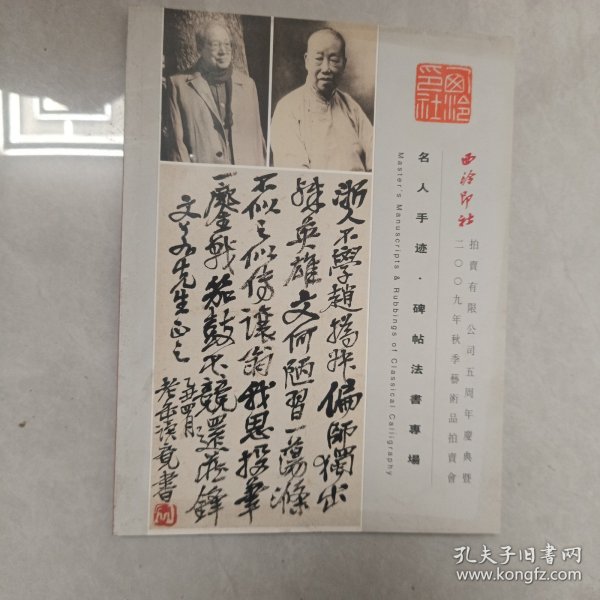 西泠印社
西泠印社
拍賣有限公司五周年慶典暨
二〇〇九年秋季藝術品拍賣會
名人手迹·碑帖法書專場
Master's Manuscripts & Rubbings of Classical Calligraphy
不學趙撝叔偏師獨出
殊英雄文何陋習一蕩滌
不似之似傳讓翁我思投筆
一鏖戰笳鼓不競還
先生正之
四月
書
孔夫子旧书网
www.kongfz.com